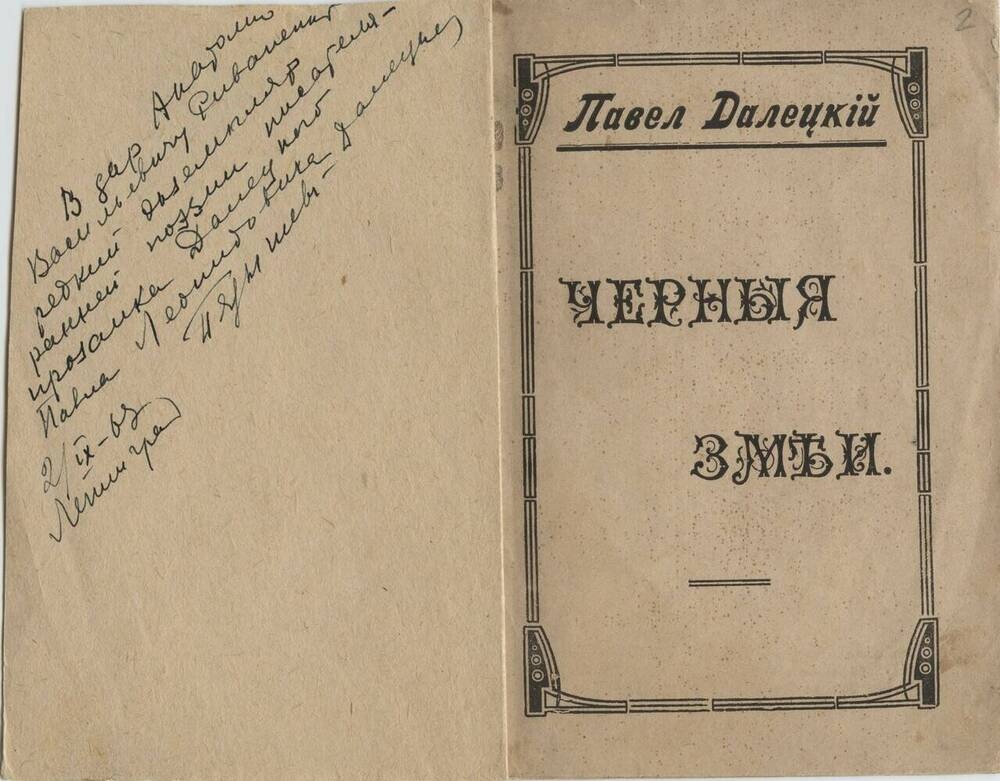 В дар Анатолию
Васильевичу
редкий экземпляр
ранней поэзии писателя-
прозаика Далецкого
Павла Леонидовича
2/IX-63
Ленинград
2
Павел Далецкій
ЧЕРНЫЯ
ЗМѢИ.